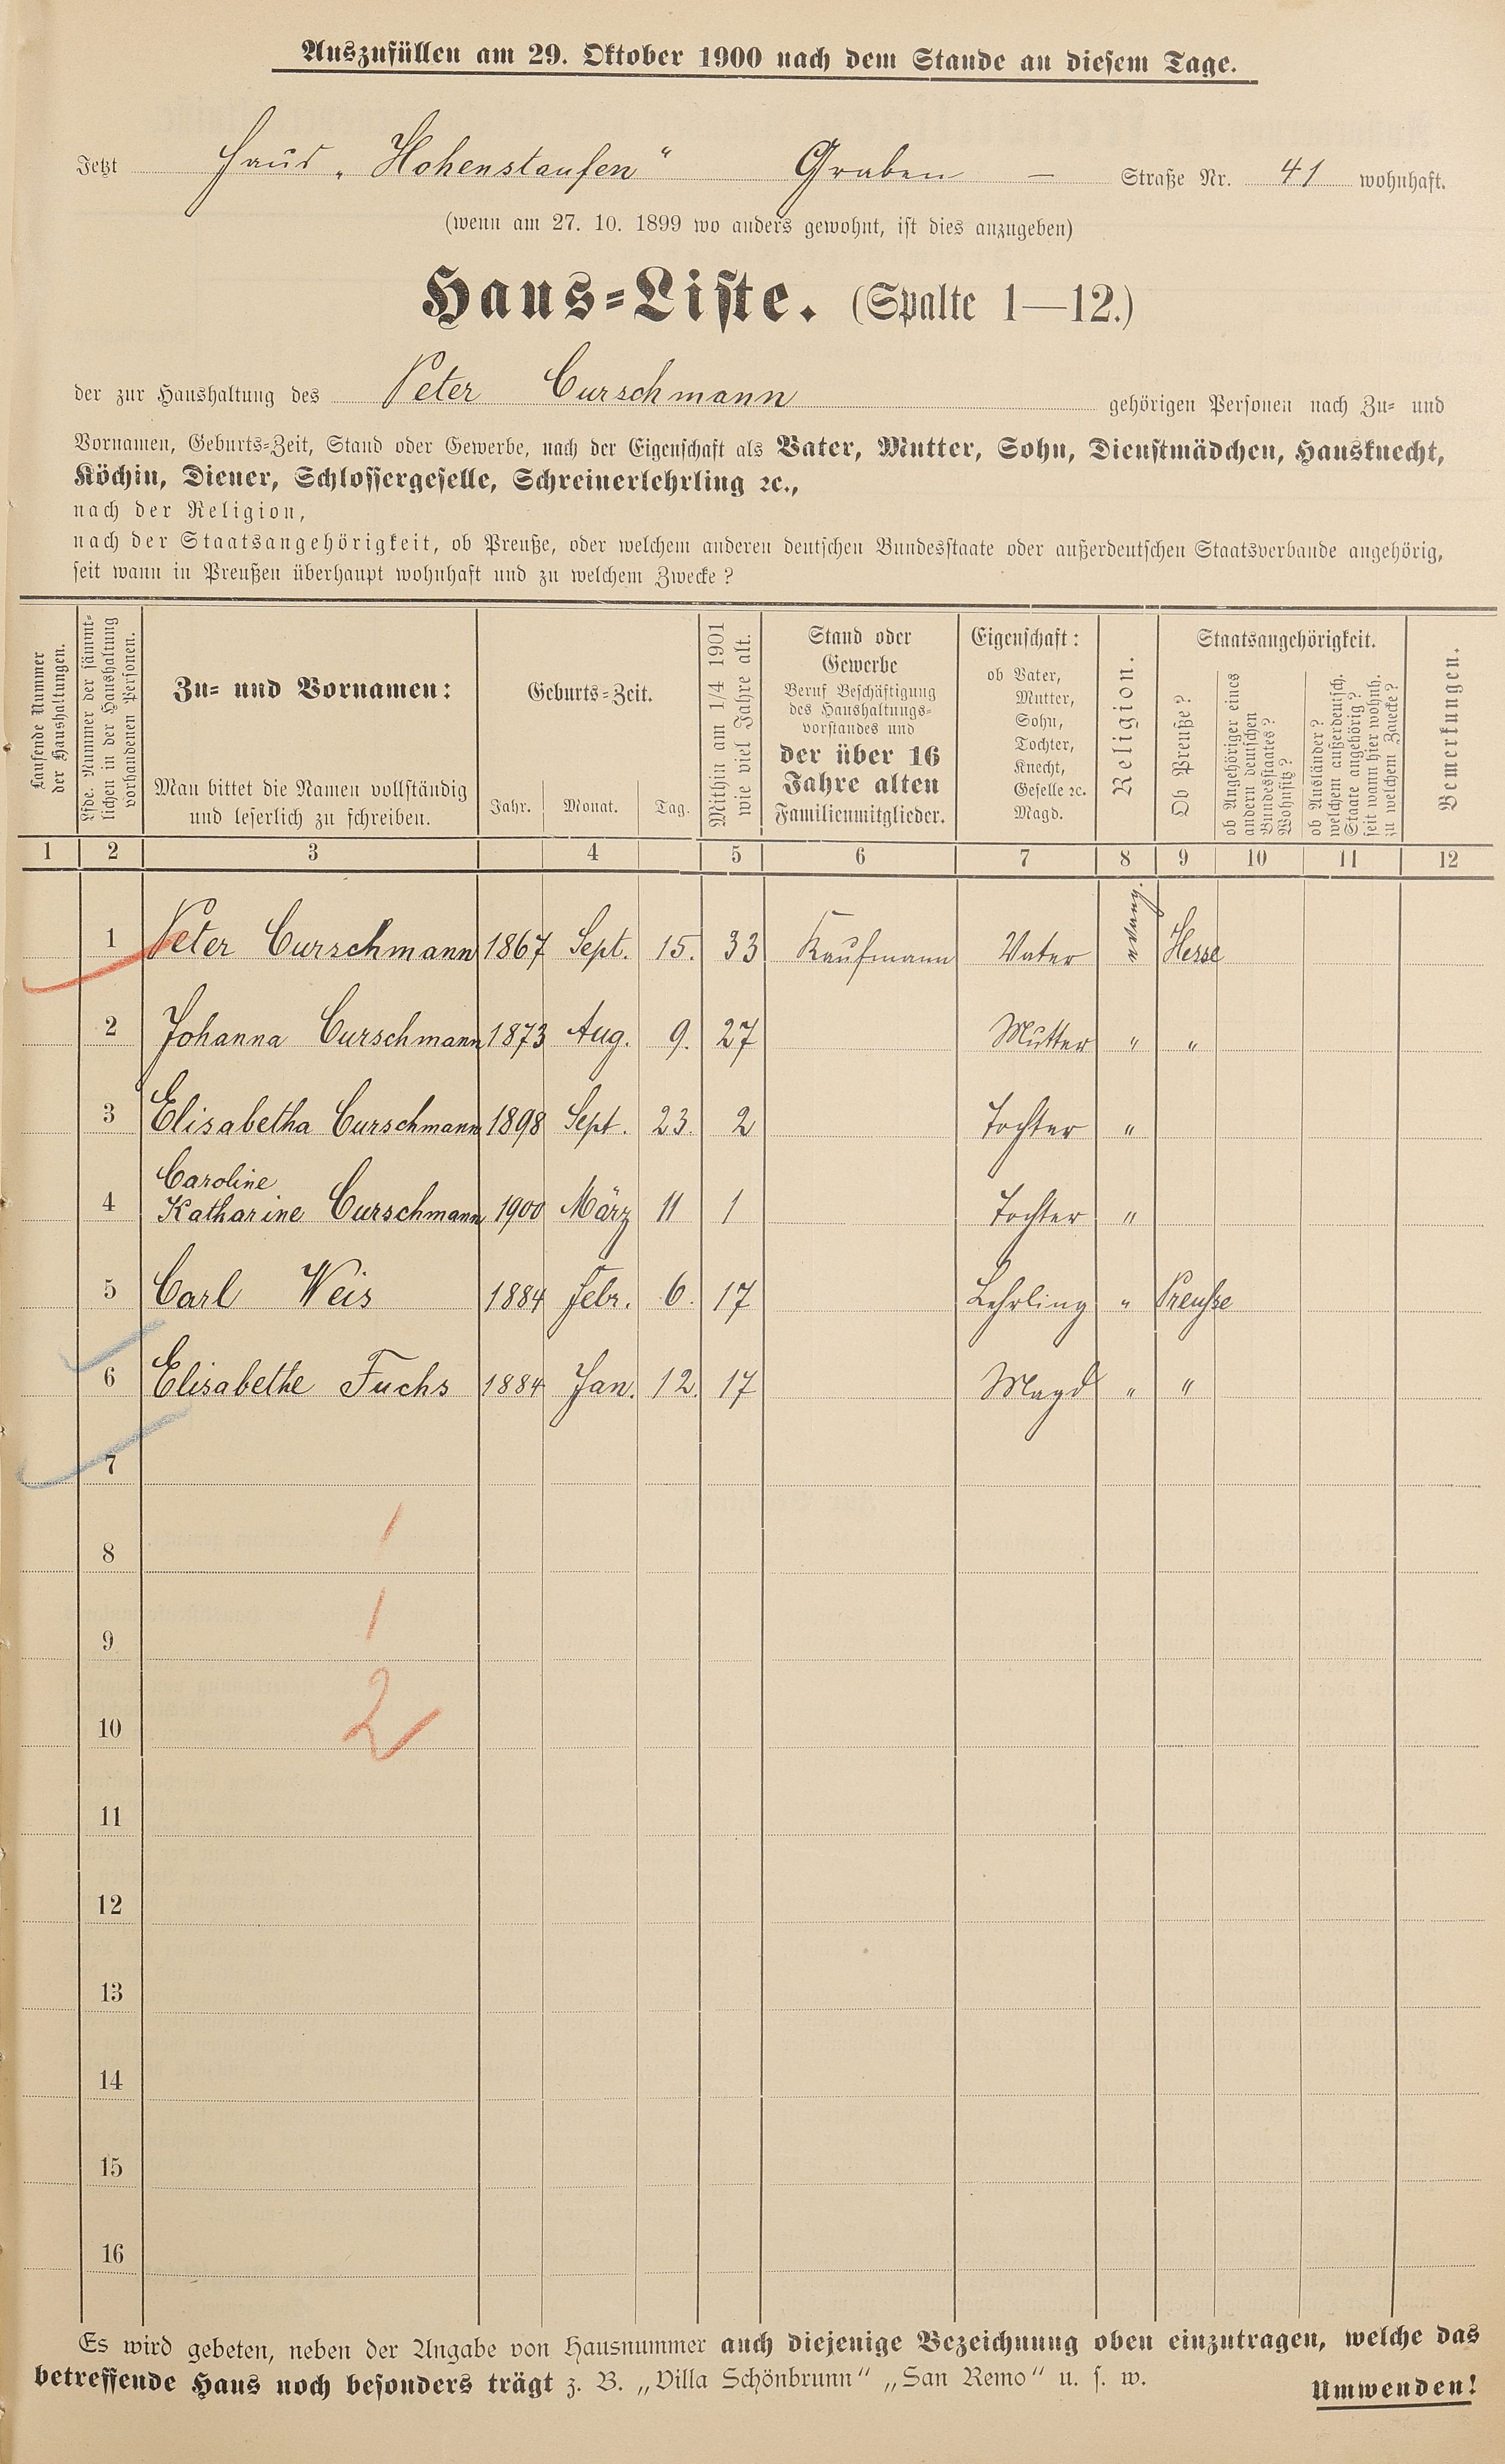 Auszufüllen am 29. Oktober 1900 nach dem Stande an diesem Tage.
Jetzt Haus „Hohenstaufen“ Graben — Straße Nr. 41 wohnhaft.
(wenn am 27. 10. 1899 wo anders gewohnt, ist dies anzugeben)
Haus=Liste. (Spalte 1—12.)
der zur Haushaltung des Peter Curschmann gehörigen Personen nach Zu= und
Vornamen, Geburts=Zeit, Stand oder Gewerbe, nach der Eigenschaft als Vater, Mutter, Sohn, Dienstmädchen, Hausknecht,
Köchin, Diener, Schlossergeselle, Schreinerlehrling ꝛc.,
nach der Religion,
nach der Staatsangehörigkeit, ob Preuße, oder welchem anderen deutschen Bundesstaate oder außerdeutschen Staatsverbande angehörig,
seit wann in Preußen überhaupt wohnhaft und zu welchem Zwecke?
Laufende Nummer
der Haushaltungen.
Lfde. Nummer der sämmt=
lichen in der Haushaltung
vorhandenen Personen.
Zu= und Vornamen:
Man bittet die Namen vollständig
und leserlich zu schreiben.
Geburts=Zeit.
Jahr. Monat. Tag.
Mithin am 1/4 1901
wie viel Jahre alt.
Stand oder
Gewerbe
Beruf Beschäftigung
des Haushaltungs=
vorstandes und
der über 16
Jahre alten
Familienmitglieder.
Eigenschaft:
ob Vater,
Mutter,
Sohn,
Tochter,
Knecht,
Geselle ꝛc.
Magd.
Religion.
Staatsangehörigkeit.
Ob Preuße?
ob Angehöriger eines
andern deutschen
Bundesstaates?
Wohnsitz?
ob Ausländer?
welchem außerdeutsch.
Staate angehörig?
seit wann hier wohnh.
zu welchem Zwecke?
Bemerkungen.
1 2 3 4 5 6 7 8 9 10 11 12
1 Peter Curschmann 1867 Sept. 15. 33 Kaufmann Vater evang. Hesse
2 Johanna Curschmann 1873 Aug. 9. 27 Mutter " "
3 Elisabetha Curschmann 1898 Sept. 23. 2 Tochter "
Caroline
4 Katharine Curschmann 1900 März 11 1 Tochter "
5 Carl Weis 1884 Febr. 6. 17 Lehrling " Preuße
6 Elisabethe Fuchs 1884 Jan. 12. 17 Magd " "
7
8 1
9 1
10 2
11
12
13
14
15
16
Es wird gebeten, neben der Angabe von Hausnummer auch diejenige Bezeichnung oben einzutragen, welche das
betreffende Haus noch besonders trägt z. B. „Villa Schönbrunn“ „San Remo“ u. s. w.
Umwenden!